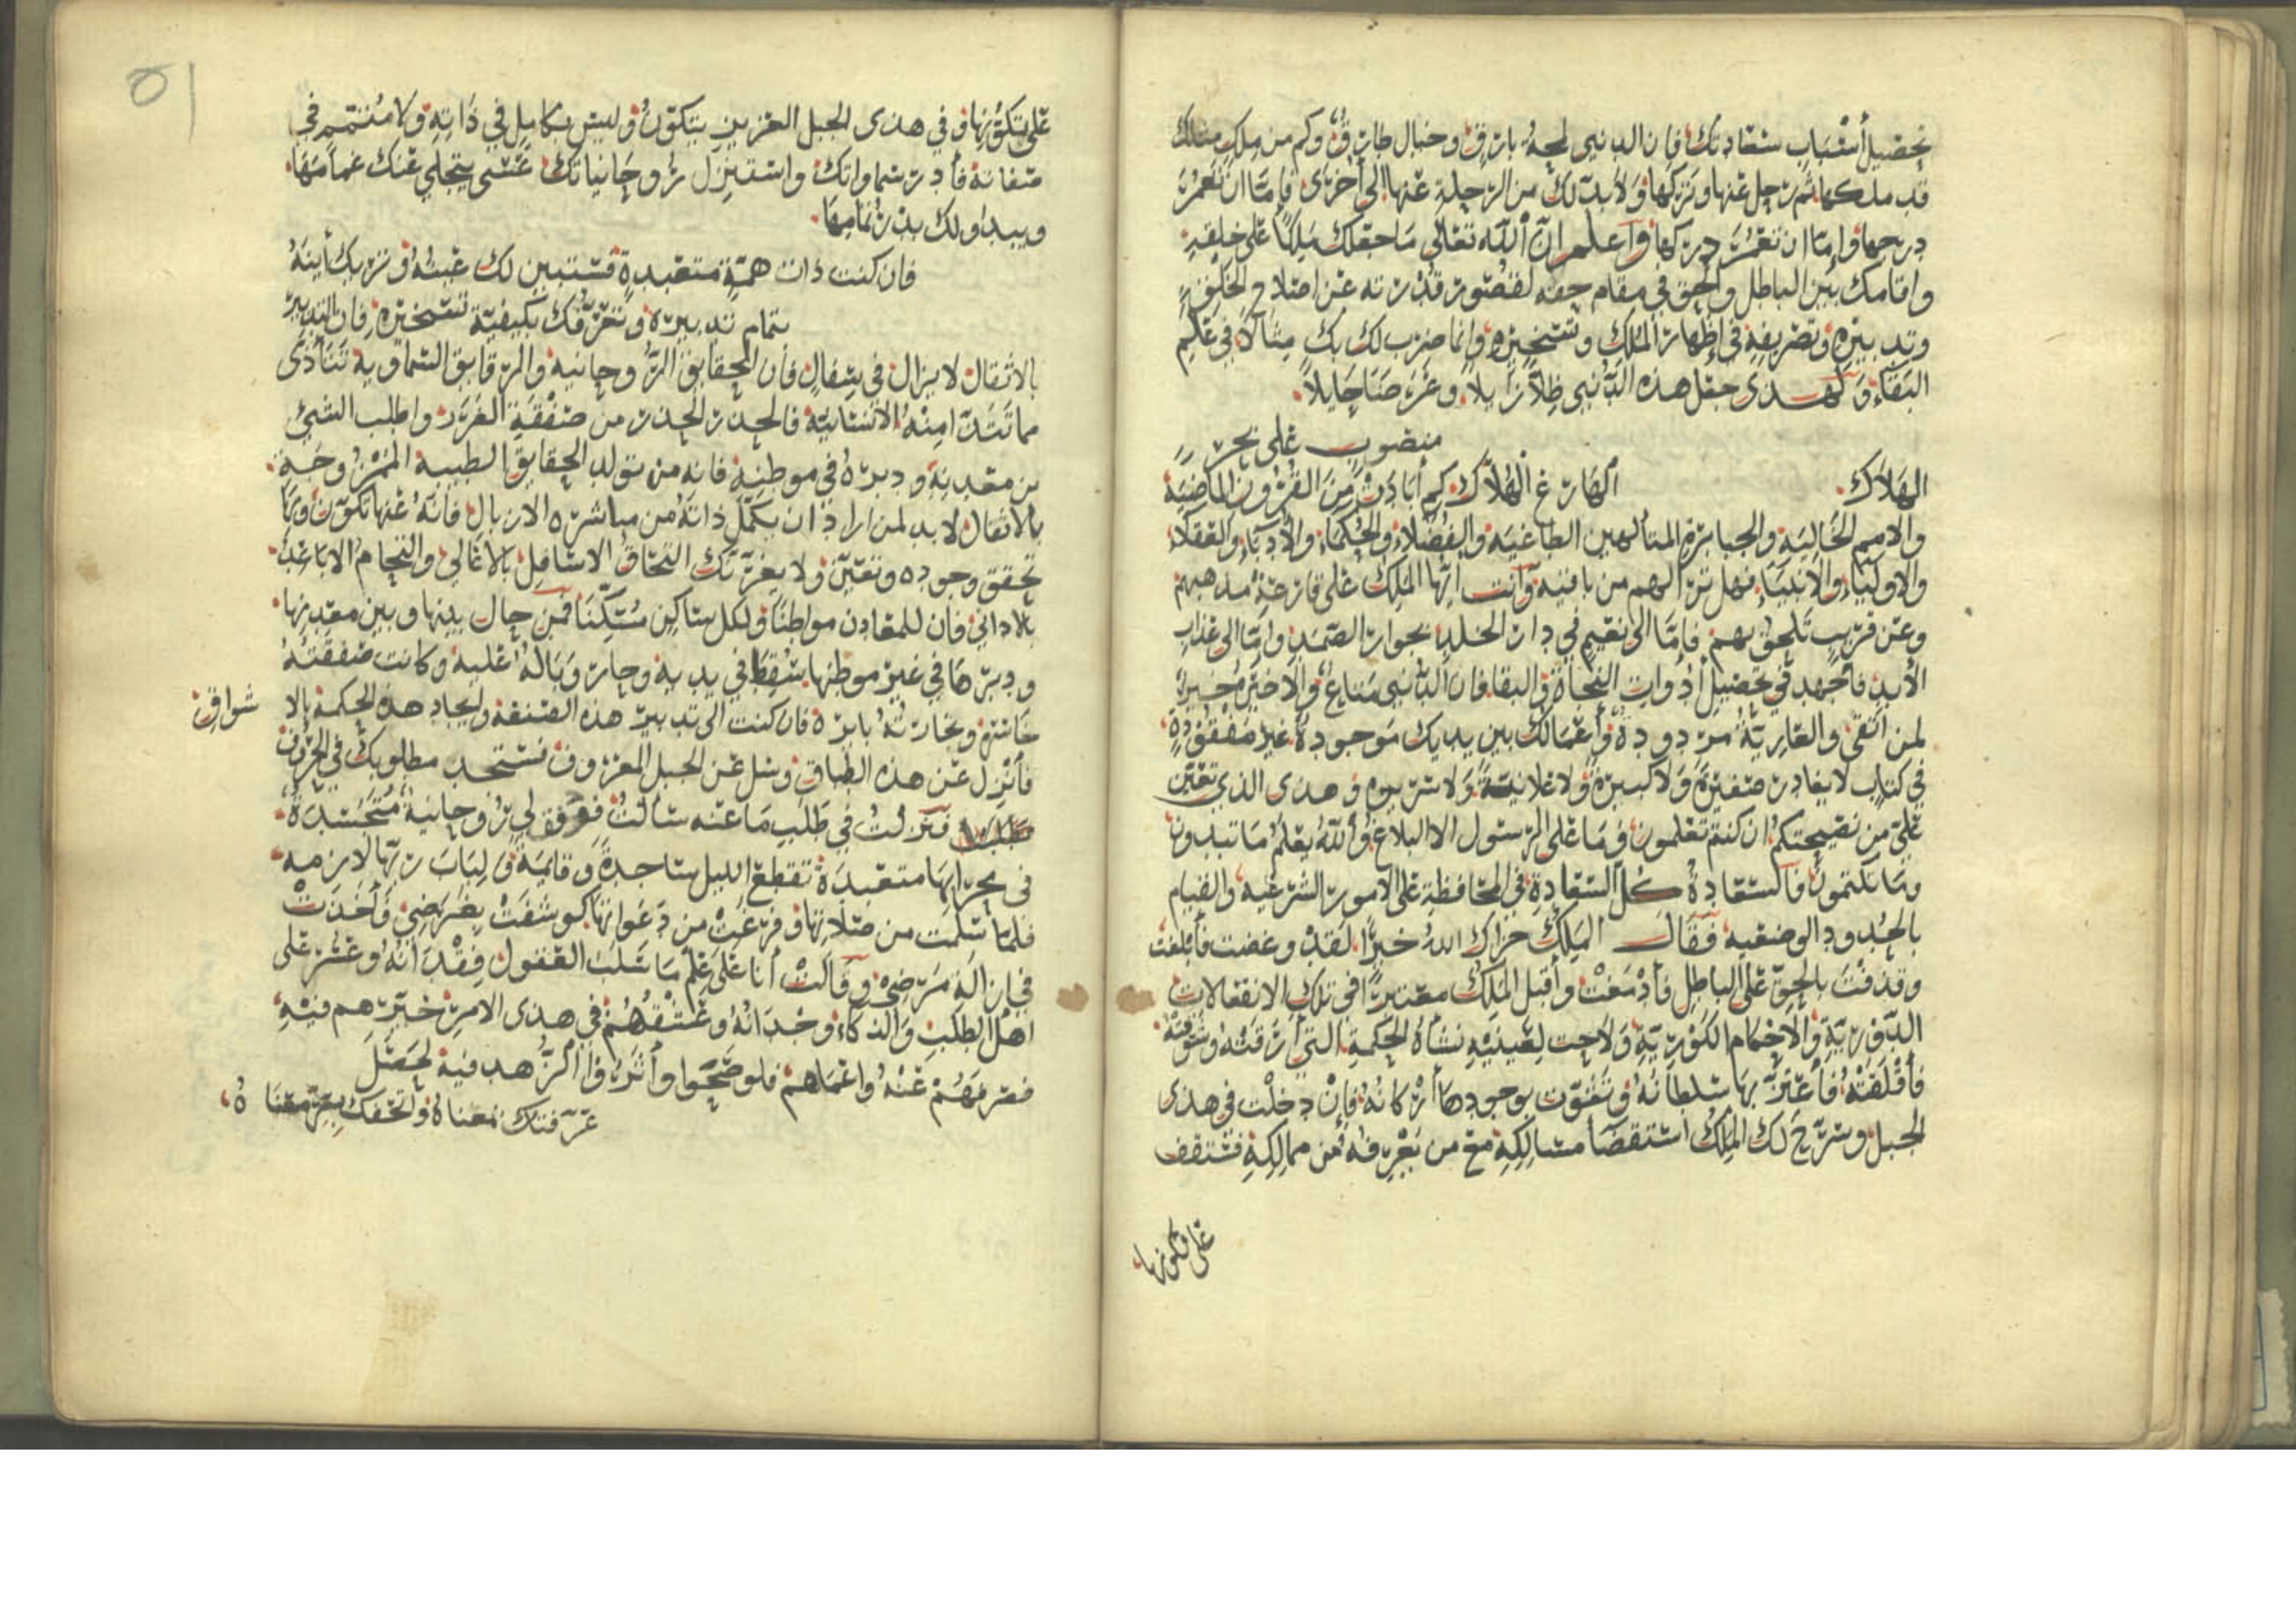 تحصيل أسباب سعادتك فان الدنيى لمحة بارق وخيال طارق وكم من ملك مثلك
قد ملكها ثم رحل عنها وتركها ولا بد لك من الرحلة عنها الى أخرى فإما ان تعمر
درجها وإما ان تعمر دركها واعلم ان الله تعالى ما جعلك ملكا على خلقه
واقامك بين الباطل والحق في مقام حقه لقصور قدرته عن اصلاح الخلق
وتدبيره وتصريفه في إظهار الملك وتسخيره وإنما ضرب لك بك مثالا في عالم
البقاء وكهدى جعل هذه الدنيى ظلا زايلا وعرضا حايلا
منصوب على نحر
الهلاك الهارع الهلاك كم أبادت من القرون الماضية
والامم الخالية والجبابرة المتألهين الطاغية والفضلاء والحكماء والأدباء والعقلاء
والاولياء والانبياء فهل ترا لهم من باقية وانت ايها الملك على قارعة مذهبهم
وعن قريب تلحق بهم فإما الى نعيم في دار الخلد بجوار الصمد واما الى عذاب
الأبد فاجهد في تحصيل أدوات النجاة في البقا فان الدنيى متاع والاخرة خير
لمن اتقى والعارية مردودة وأعمالك بين يديك موجودة غير مفقودة
في كتاب لا يغادر صغيرة ولا كبيرة ولا علانية ولا سريرة وهدى الذي تعين
علي من نصيحتكم ان كنتم تعلمون وما على الرسول الا البلاغ والله يعلم ما تبدون
وما تكتمون فالسعادة كل السعادة في المحافظة على الامور الشرعية والقيام
بالحدود الوضعية فقال الملك جزاك الله خيرا لقد وعضت فأبلغت
وقذفت بالحق على الباطل فأدمغت وأقبل الملك معتبرا في تلك الانفعالات
الدورية والاحكام الكورية ولاحت لعينيه نشأة الحكمة التي أرقته وشوقته
فأقلقته فأعتز بها سلطانه وتقوت بوجودها أركانه فإن دخلت في هدى
الجبل وسرح لك الملك استقصا مسالكه مع من يعرفه من ممالكه فستقف
على تكونها
على تكونها وفي هدى الجبل العزيز يتكون وليس بكامل في ذاته ولا متمم في
صفاته فأدر سماواتك واستنزل روحانياتك عسى يتجلي عنك غمامها
ويبدو لك بدر تمامها
فان كنت ذات همة متعبدة فستبين لك عبثه وتريك أينه
بتمام تدبيره وتعرفك بكيفية تسخيره فان التدبير
بالاثقال لا يزال في سفال فأن الحقايق الروحانيه والرقايق السماويه تتأذى
مما تتأذا منه الانسانية فالحذر الحذر من صفقة الغرر واطلب الشيئ
من معدنه ودبره في موطنه فانه من تولد الحقايق الطيبة الممزوجة
بالاثقال لا بد لمن اراد ان يكمل ذاته من مباشره الازبال فأنه عنها تكون وبها
تحقق وجوده وتعين ولا يغرنك التحاق الاسافل بالاعالي والتحام الاباعد
بالاداني فان للمعادن مواطنا ولكل ساكن مسكنا فمن حال بينها وبين معدنها
ودبرها في غير موطنها سقط في يديه وحار وباله عليه وكانت صفقته
خاسرة وتجارته بايرة فان كنت الى تدبير هذه الصنعة وايجاد هذه الحكمة بالا
شواق
فأنزل عن هذه الطباق وسل عن الجبل المعروف فستجد مطلوبك في الحروف
فنزلت في طلب ما عنه سألت فوقف لي روحانية متجسدة
في محرابها متعبدة تقطع الليل ساجدة وقايمة ولباب ربها لازمه
فلما سلمت من صلاتها وفرغت من دعواتها كوشفت بغرضي وأخذت
في إزالة مرضي وقالت أنا على علم ما سلب العقول فقدانه وعسر على
اهل الطلب والذكاء وجدانه وعشقهم في هدى الامر خيرهم فيه
فصرفهم عنه واعماهم فلو صححوا وأثروا الزهد فيه لحصل
عرفتك معناه وأتحفك بسر معناه